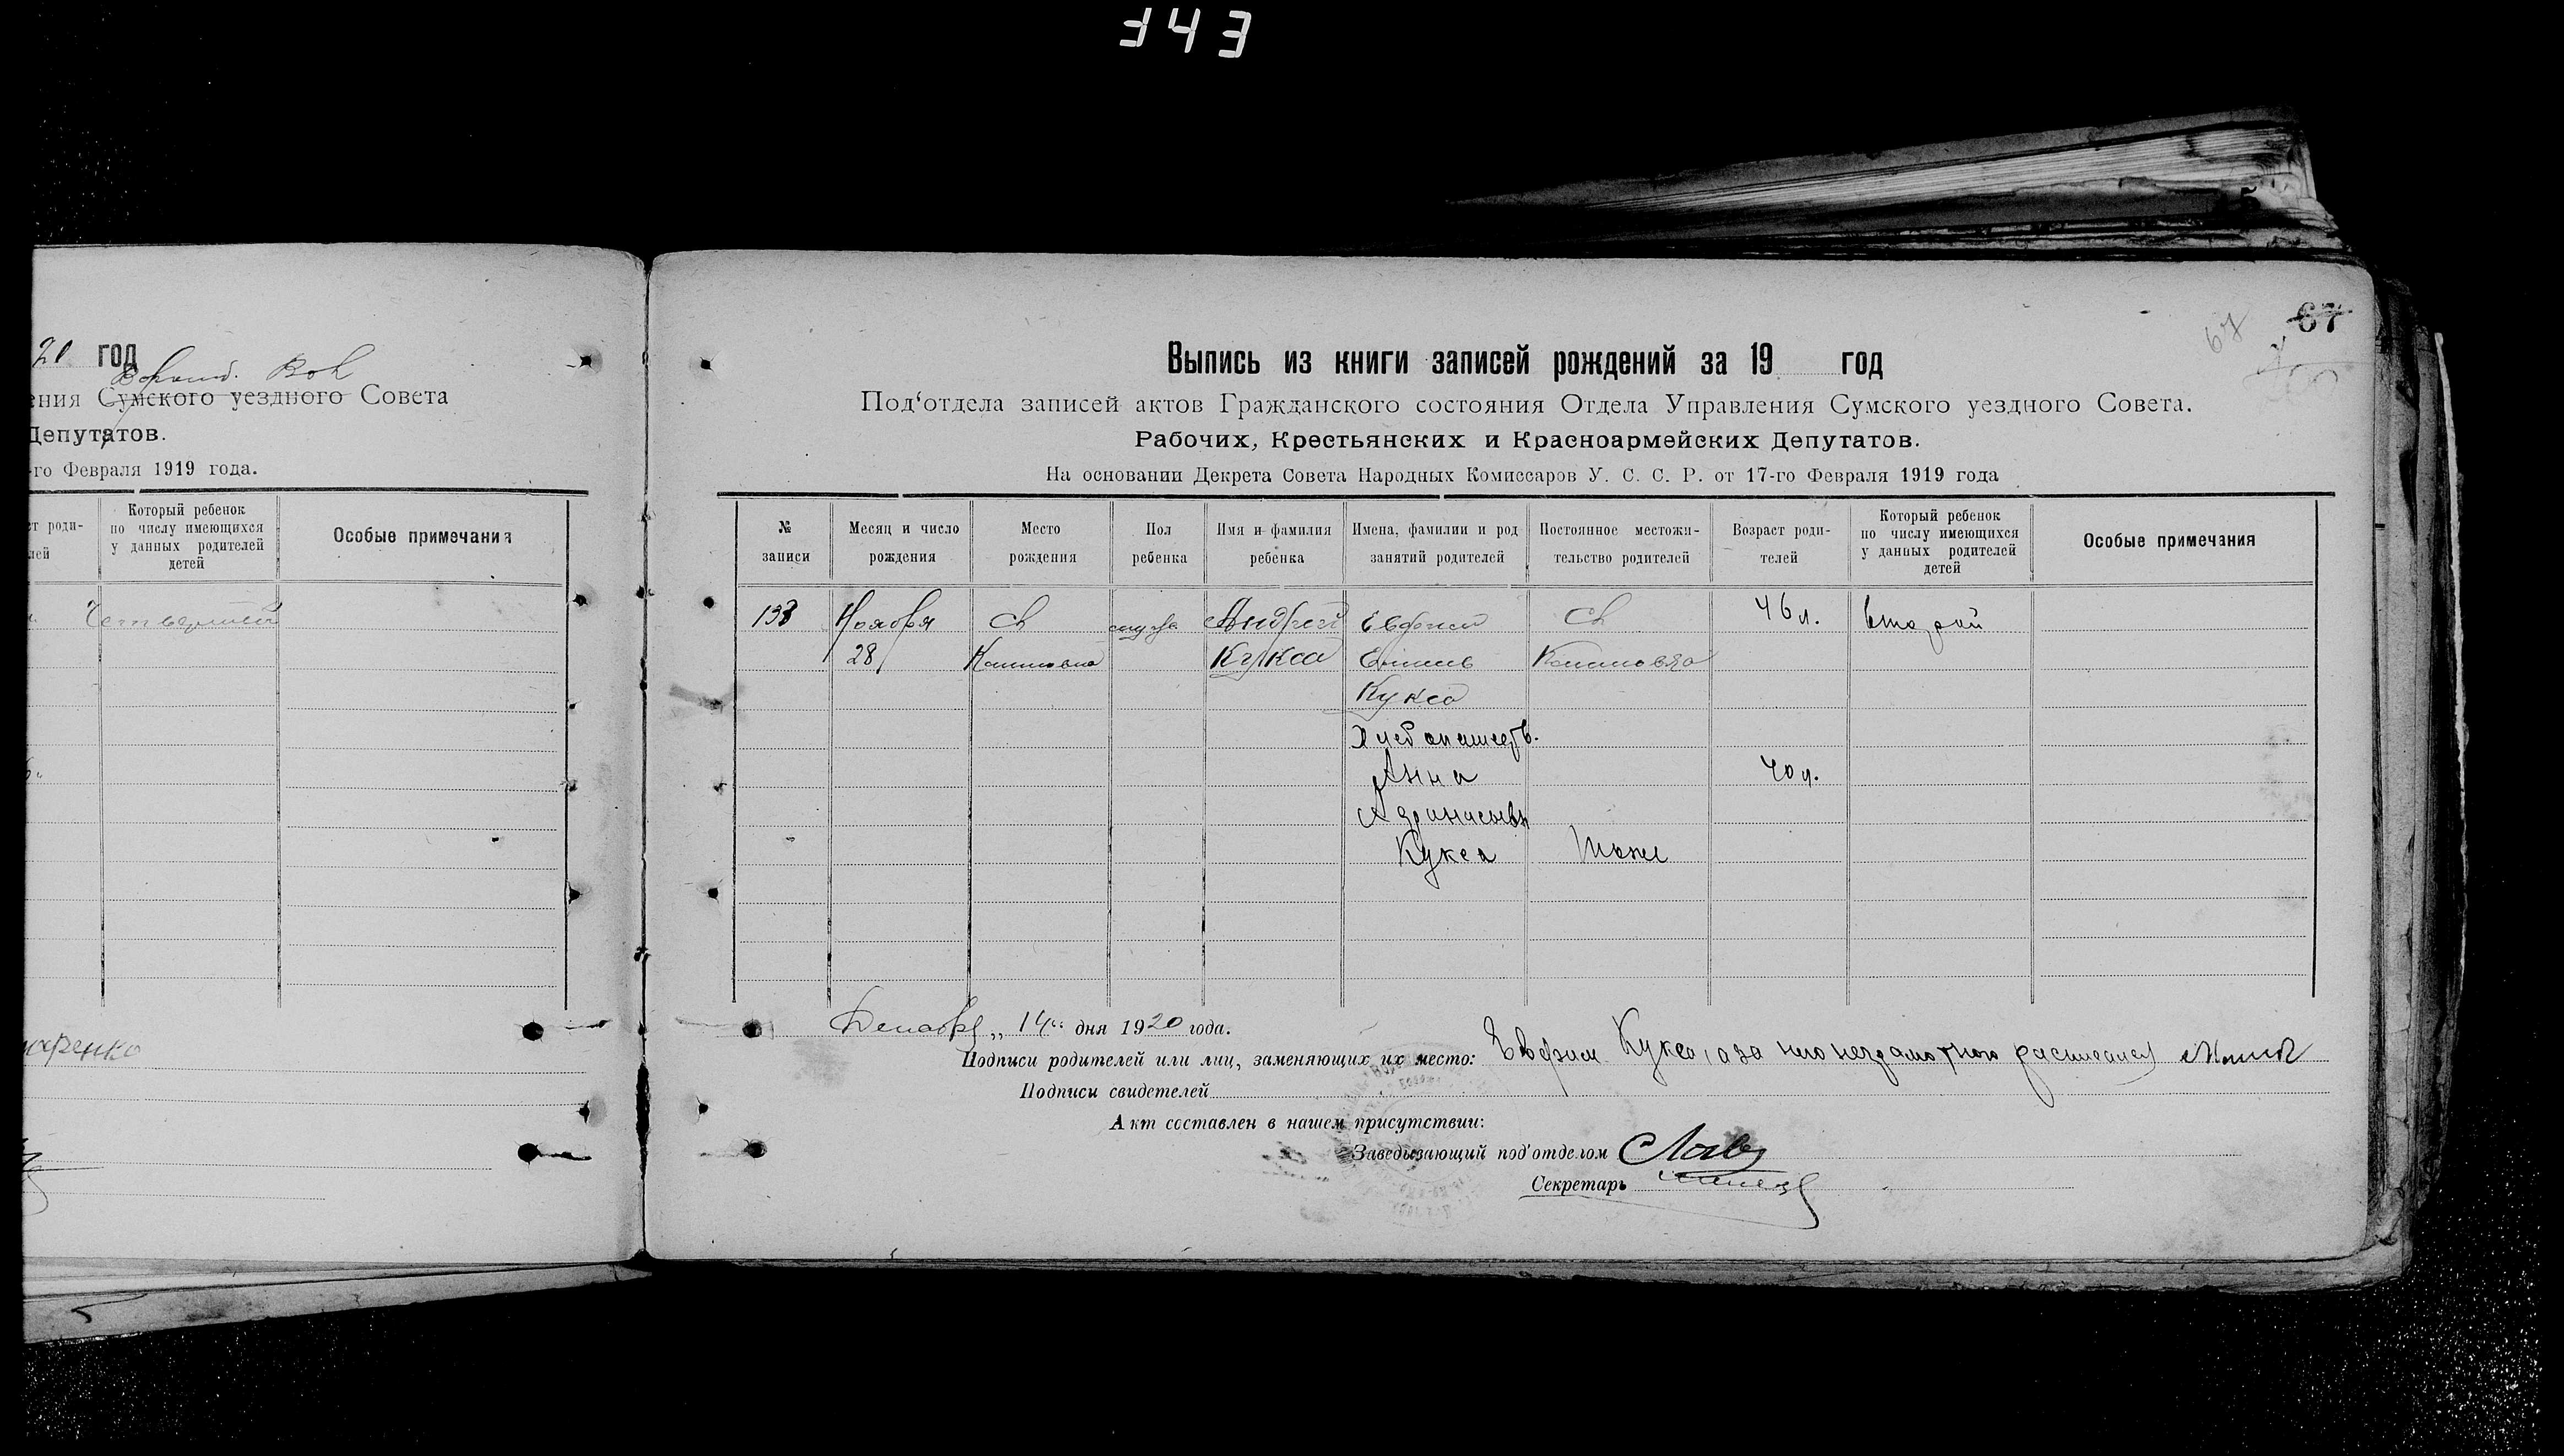 343
21 год
Вол
ения Сумского уездного Совета
Депутатов.
-го Февраля 1919 года.
ст роди-
лей
Который ребенок
по числу имеющихся
у данных родителей
детей
Особые примечания
Четвертый
67
67
Выпись из книги записей рождений за 19 год
Под‘отдела записей актов Гражданского состояния Отдела Управления Сумского уездного Совета.
Рабочих, Крестьянских и Красноармейских Депутатов.
На основании Декрета Совета Народных Комиссаров У. С. С. Р. от 17-го Февраля 1919 года
№ записи
Месяц и число рождения
Место рождения
Пол ребенка
Имя и фамилия ребенка
Имена, фамилии и род занятий родителей
Постоянное местожи-тельство родителей
Возраст роди-телей
Который ребенок по числу имеющихся у данных родителей детей
Особые примечания
Ноября Андрей Евфим 46 л. второй
28 Кукса
Кукса
Хлебопашеств.
Анна 40 л.
Афанасьевн
Кукса Тоже
Декабря „14“ дня 1920 года.
Подписи родителей или лиц, заменяющих их место: Евфим Кукса, а за него неграмотного расписался
Подписи свидетелей
Акт составлен в нашем присутствии:
Заведывающий под‘отделом
Секретарь